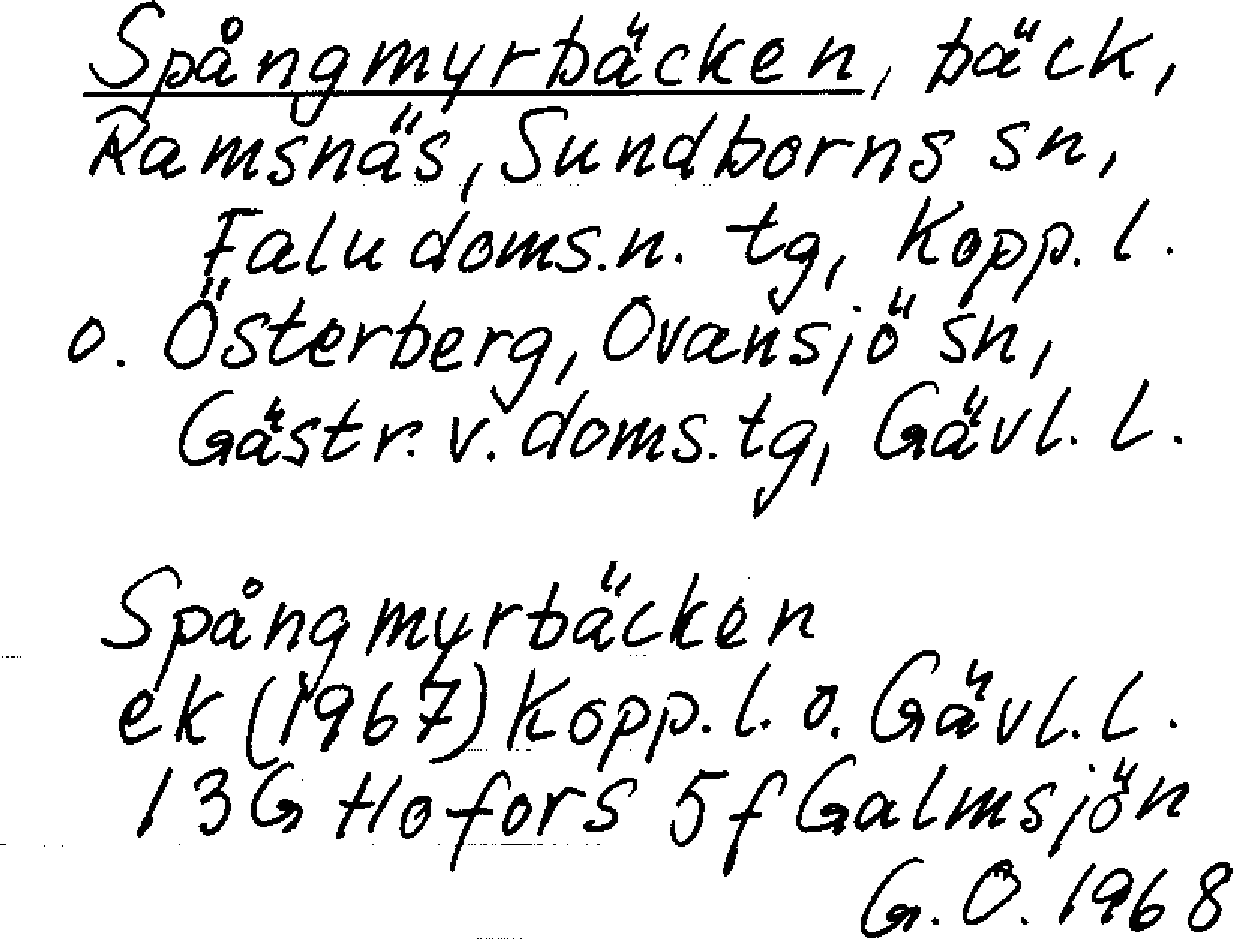 Spångmyrbäcken, bäck,
Ramsnäs, Sundborns sn,
Falu doms.n. tg, Kopp. l.
o. Österberg, Ovansjö sn,
Gästr. v. doms. tg, Gävl. l.
Spångmyrbäcken
ek (1967) Kopp. l. o. Gävl. l.
13G Hofors 5f Galmsjön
G. O. 1968